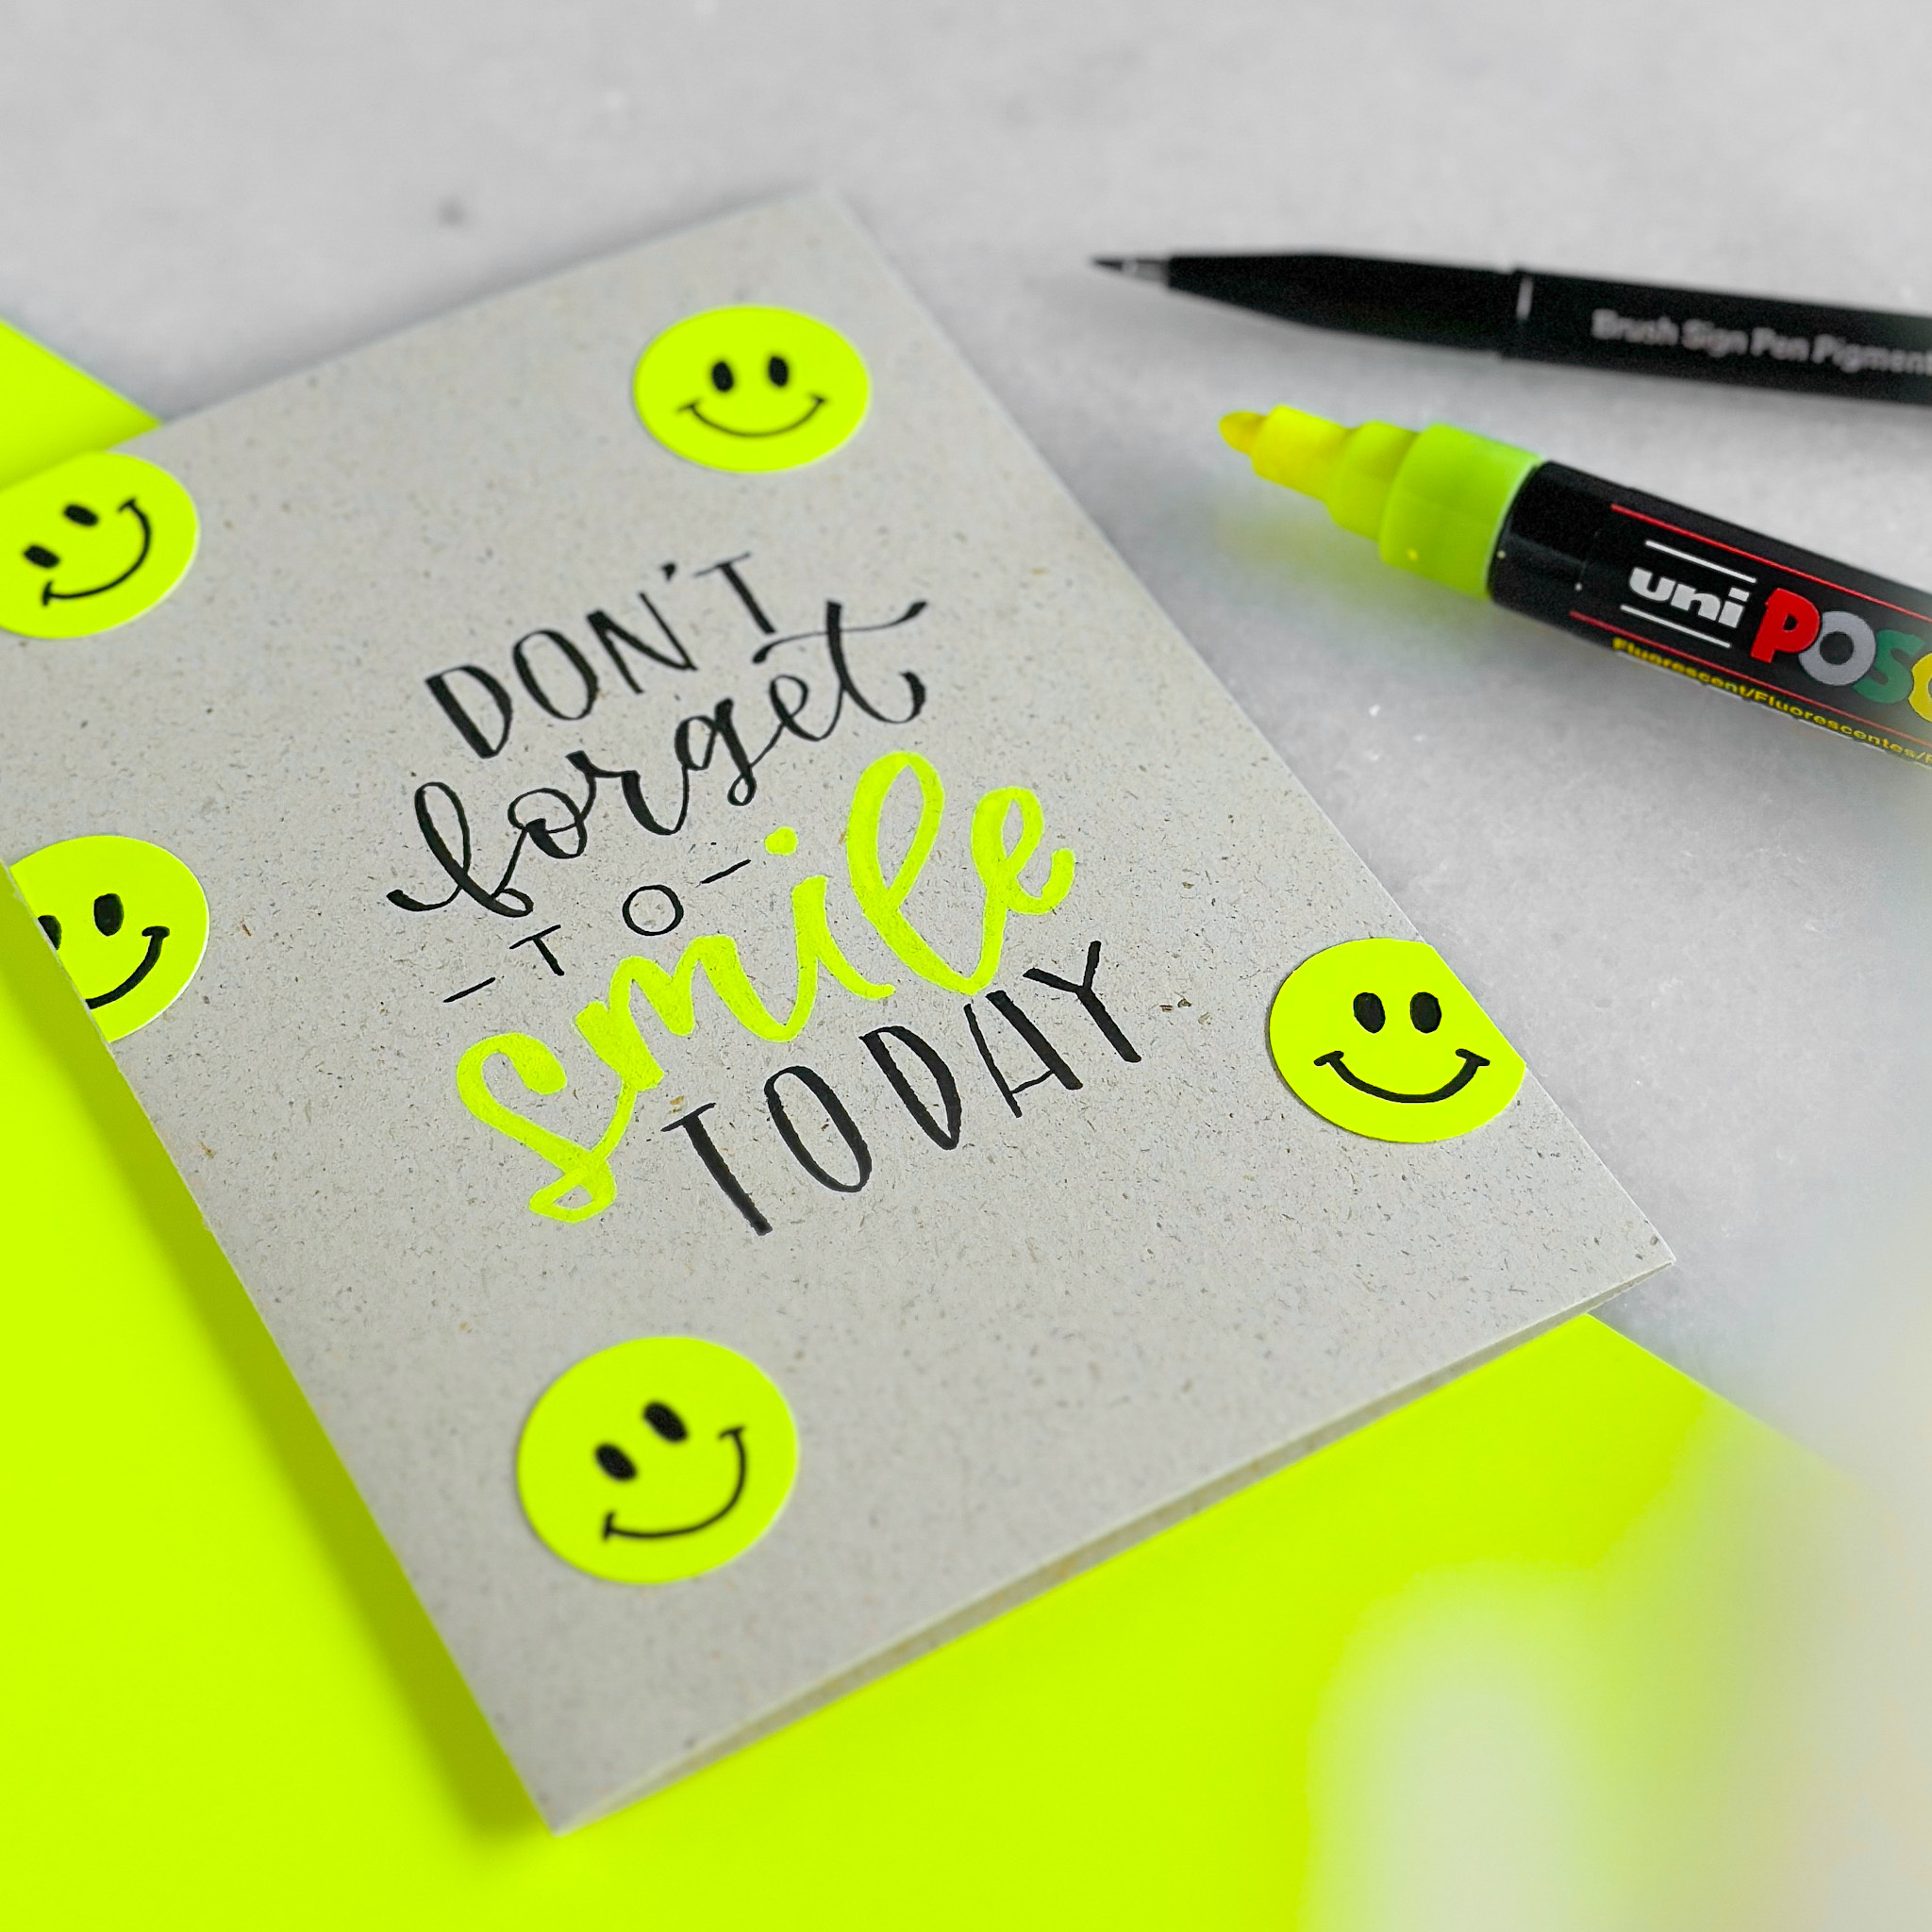 DON'T
forget
- TO -
smile
TODAY
Brush Sign Pen Pigment
uni POSC
Fluorescent/Fluorescentes/